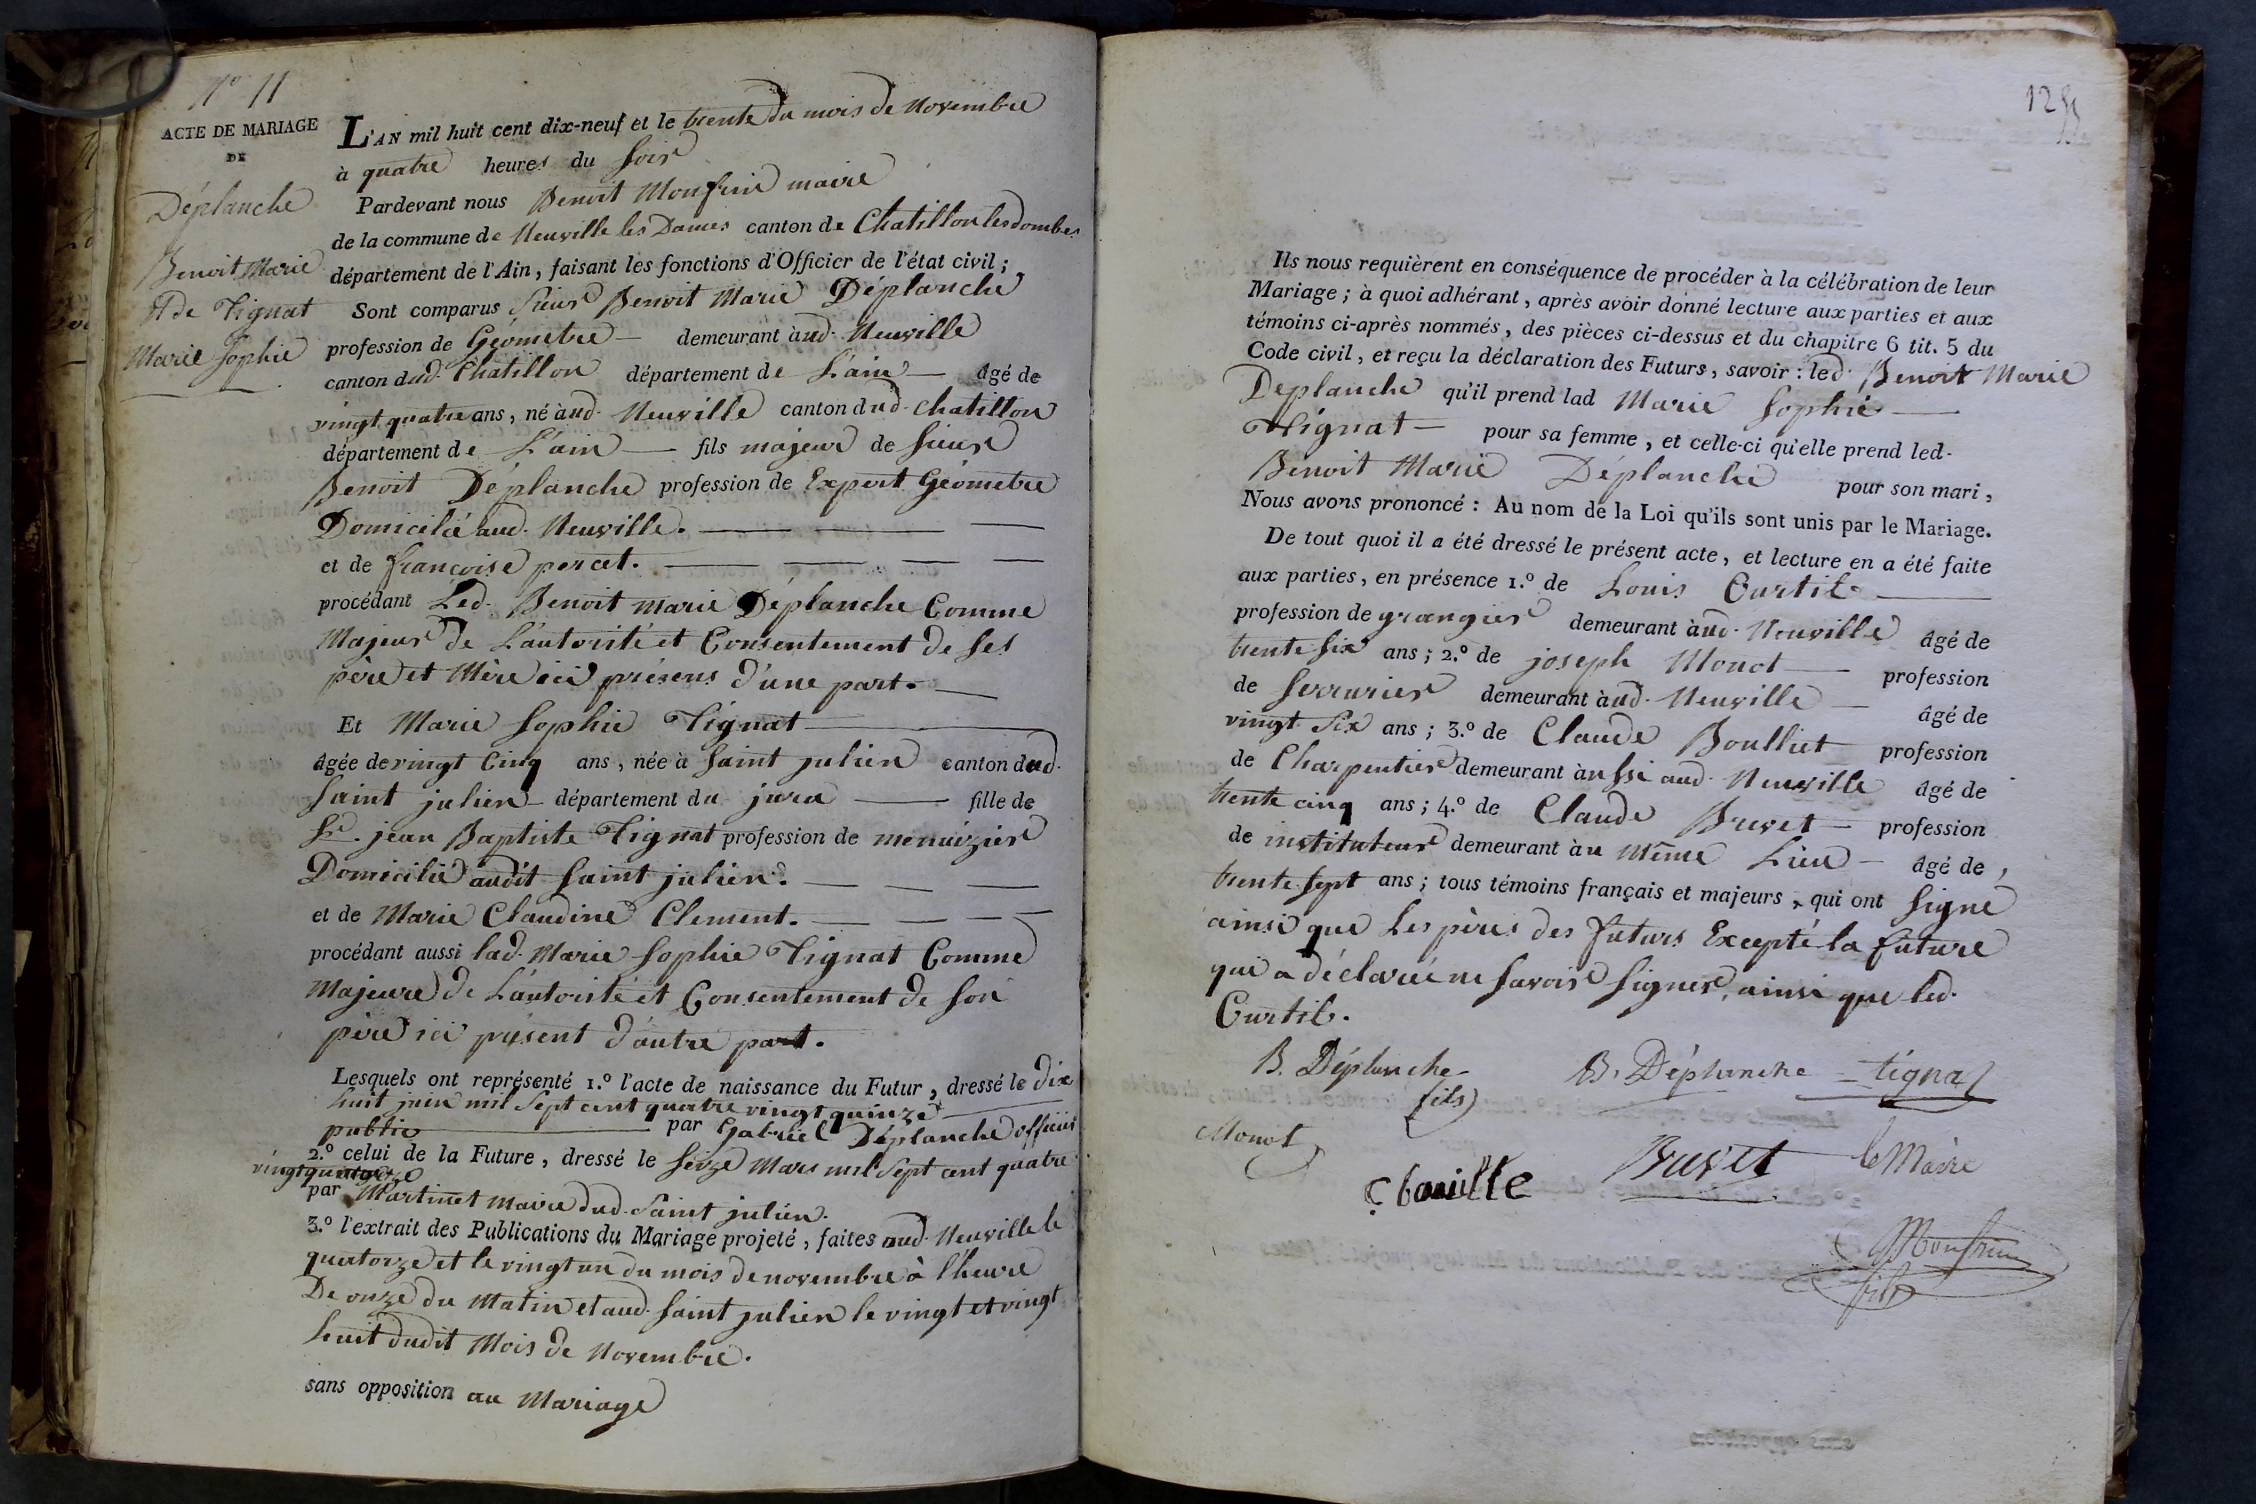 N° 11
ACTE DE MARIAGE
DE
Déplanche
Benoit Marie
& de Tignat
Marie Sophie
L'AN mil huit cent dix-neuf et le trente du mois de Novembre
à quatre heures du soir
Pardevant nous Benoit Monfrin maire
de la commune de Neuville les Dames canton de Chatillon les dombes
département de l'Ain, faisant les fonctions d'Officier de l'état civil;
Sont comparus Sieur Benoit Marie Déplanche
profession de Géometre — demeurant aud. Neuville
canton dud. Chatillon département de L'ain — âgé de
vingt quatre ans, né aud. Neuville canton dud. Chatillon
département de L'ain — fils majeur de Sieur
Benoit Déplanche profession de Expert Géometre
Domicilié aud. Neuville. — — —
et de françoise percet. — — — —
procédant Led. Benoit Marie Déplanche Comme
Majeur de L'autorité et Consentement de Ses
père et Mère ici présens d'une part. —
Et Marie Sophie Tignat —
âgée de vingt Cinq ans, née à Saint julien canton dud.
Saint julien — département du jura — fille de
Sr. jean Baptiste Tignat profession de menuizier
Domicilié audit Saint julien. — — —
et de Marie Claudine Clement. — — — —
procédant aussi lad. Marie Sophie Tignat Comme
Majeure de L'autorité et Consentement de Son
père ici présent d'autre part.
Lesquels ont représenté 1.° l'acte de naissance du Futur, dressé le dix
huit juin mil Sept cent quatre vingt quinze —
public — par Gabriel Déplanche officier
2.° celui de la Future, dressé le Seize Mars mil Sept cent quatre
vingt quatorze
par Martinet maire dud. Saint julien.
3.° l'extrait des Publications du Mariage projeté, faites aud. Neuville le
quatorze et le vingt un du mois de novembre à l'heure
De onze du Matin et aud. Saint julien le vingt et vingt
huit dudit Mois de Novembre.
sans opposition au Mariage
125
Ils nous requièrent en conséquence de procéder à la célébration de leur
Mariage; à quoi adhérant, après avoir donné lecture aux parties et aux
témoins ci-après nommés, des pièces ci-dessus et du chapitre 6 tit. 5 du
Code civil, et reçu la déclaration des Futurs, savoir: led. Benoit Marie
Deplanche qu'il prend lad Marie Sophie —
Tignat — pour sa femme, et celle-ci qu'elle prend led.
Benoit Marie Déplanche pour son mari,
Nous avons prononcé: Au nom de la Loi qu'ils sont unis par le Mariage.
De tout quoi il a été dressé le présent acte, et lecture en a été faite
aux parties, en présence 1.° de Louis Curtil —
profession de grangier demeurant aud. Neuville âgé de
trente six ans; 2.° de joseph Monot — profession
de Serrurier demeurant aud. Neuville — âgé de
vingt Six ans; 3.° de Claude Boulliet profession
de Charpentier demeurant aussi aud. Neuville âgé de
trente cinq ans; 4.° de Claude Buvet — profession
de instituteur demeurant au Même Lieu — âgé de
trente Sept ans; tous témoins français et majeurs, qui ont Signé
ainsi que Les pères des futurs Excepté la future
qui a déclarée ne Savoir Signer, ainsi que led.
Curtil.
B. Déplanche fils
B. Déplanche
tignaz
Monot
C bouille
Buvet
le Maire
Monfrin
fils